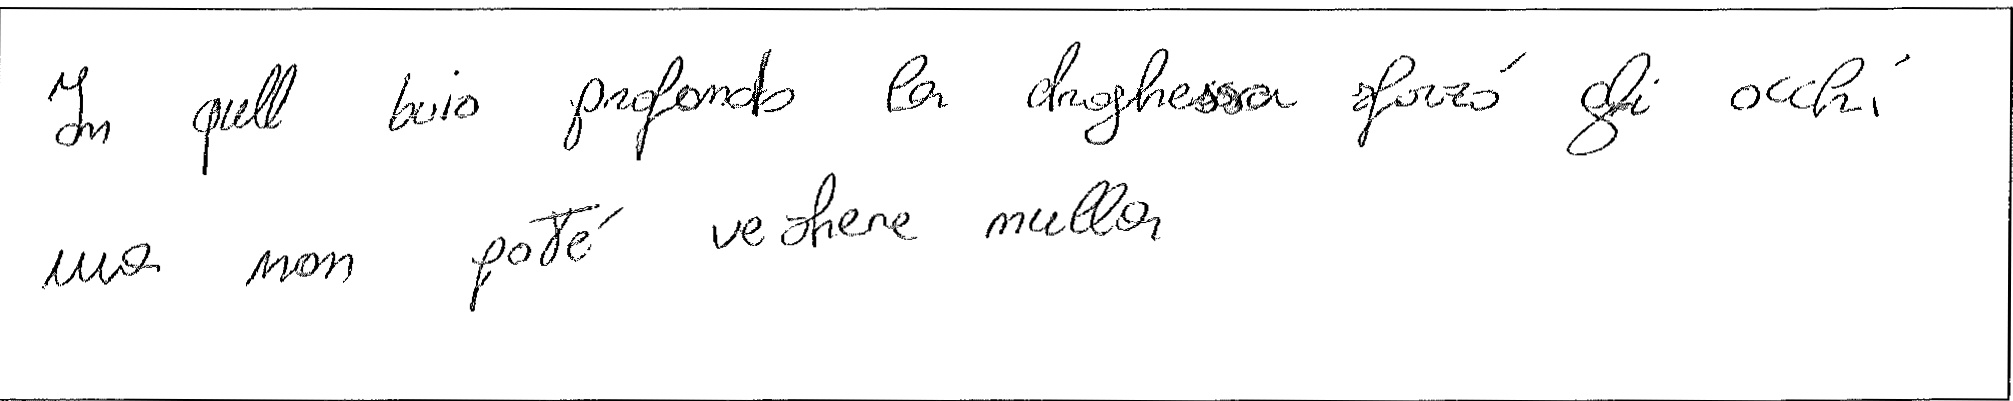 In quell buio profondo la draghessa sforzó gli occhi
ma non poté vedere nulla